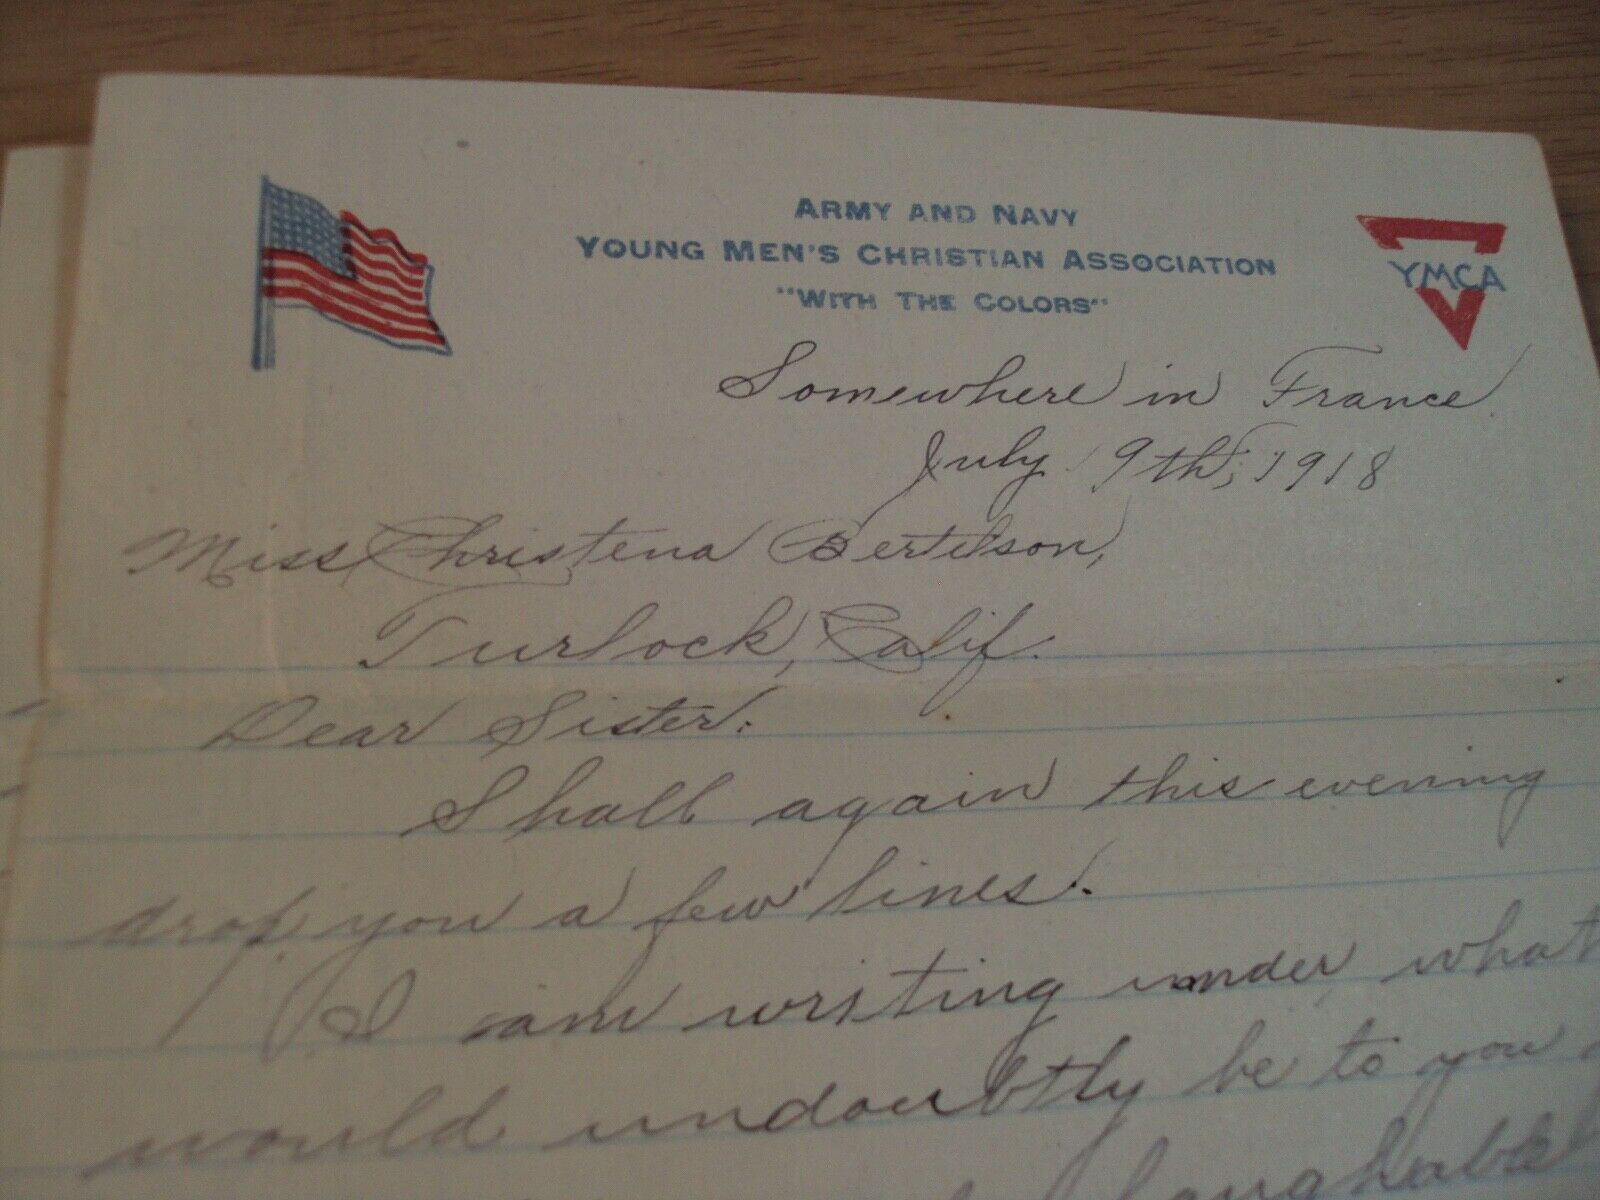 ARMY AND NAVY
YOUNG MEN'S CHRISTIAN ASSOCIATION
"WITH THE COLORS"
YMCA
Somewhere in France
July 9th, 1918
Miss Christena Bertelson,
Turlock, Calif.
Dear Sister:
Shall again this evening
drop you a few lines.
I am writing under what
would undoubtly be to you
laughable